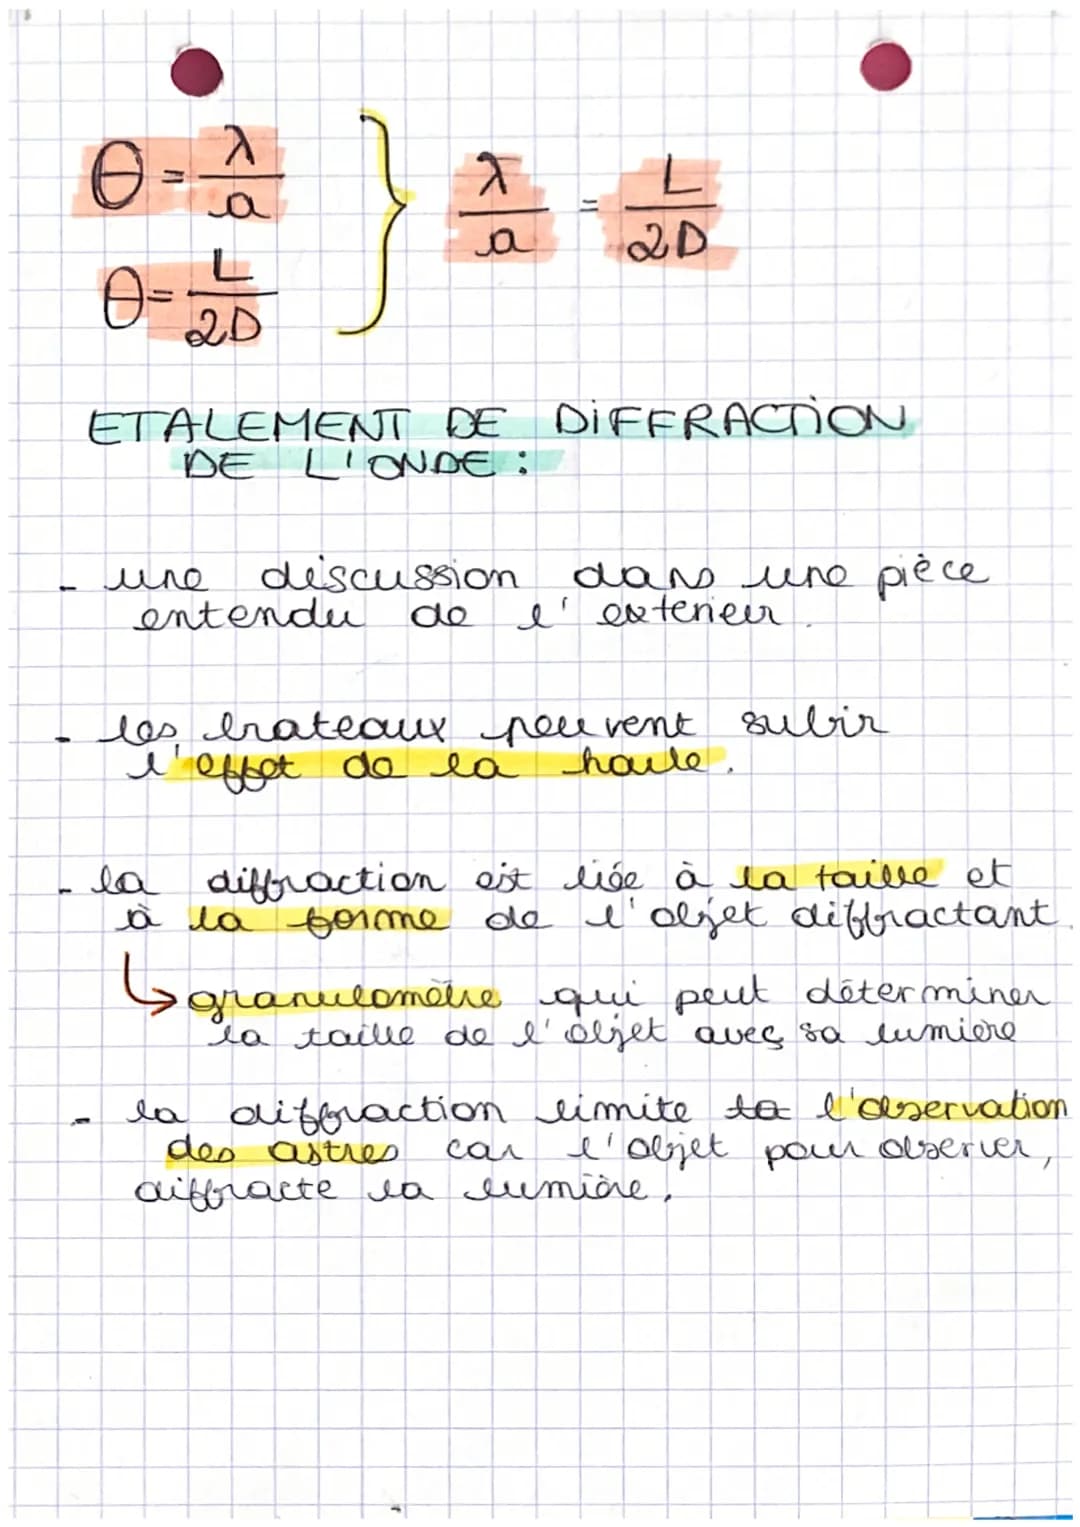 θ = λ/a } λ/a = L/2D
θ = L/2D
ETALEMENT DE DIFFRACTION
DE L'ONDE :
- une discussion dans une pièce
entendu de l'exterieur.
- les bateaux peuvent subir
l'effet de la houle.
- la diffraction est liée à la taille et
à la forme de l'objet diffractant.
↳ granulomètre qui peut déterminer
la taille de l'objet avec sa lumière
- la diffraction limite la l'observation
des astres car l'objet pour observer,
diffracte la lumière.